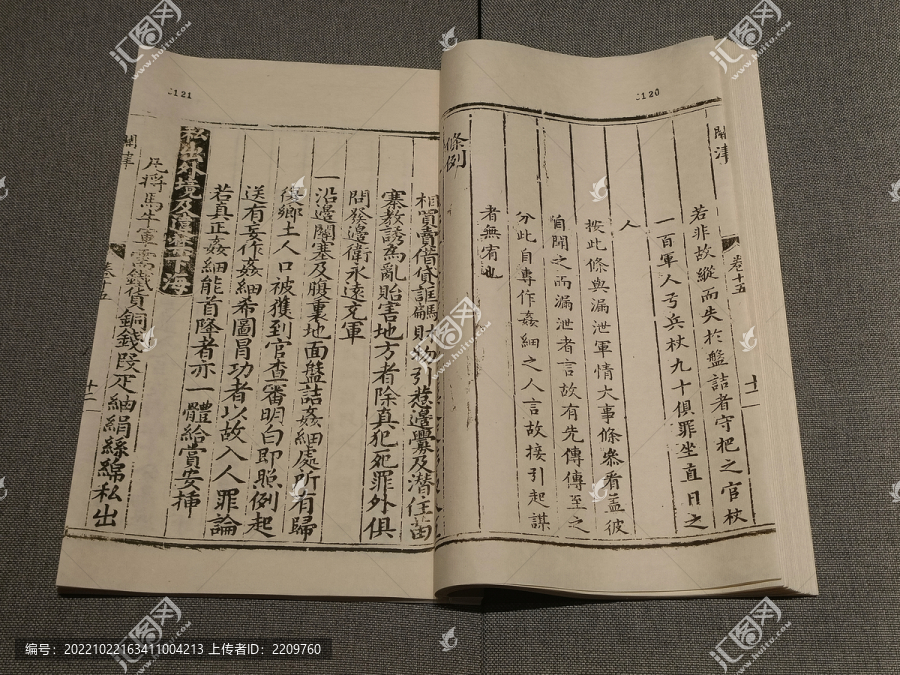 120
關津
卷十五
十二
若非故縱而失於盤詰者守把之官杖
一百軍人弓兵杖九十俱罪坐直日之
人
按此條與漏泄軍情大事條參看蓋彼
自聞之而漏泄者言故有先傳傳至之
分此自專作姦細之人言故接引起謀
者無宥也
條例
121
相買賣借貸誆騙財物引惹邊釁及潛住苗
寨教誘為亂貽害地方者除真犯死罪外俱
問發邊衛永遠充軍
一沿邊關塞及腹裏地面盤詰姦細處所有歸
復鄉土人口被獲到官查審明白即照例起
送有妄作姦細希圖冒功者以故入人罪論
若真正姦細能首降者亦一體給賞安插
私出外境及違禁下海
凡將馬牛軍需鐵貨銅錢段疋紬絹絲綿私出
關津
卷十五
十二
汇图网
www.huitu.com
编号：20221022163411004213 上传者ID：2209760